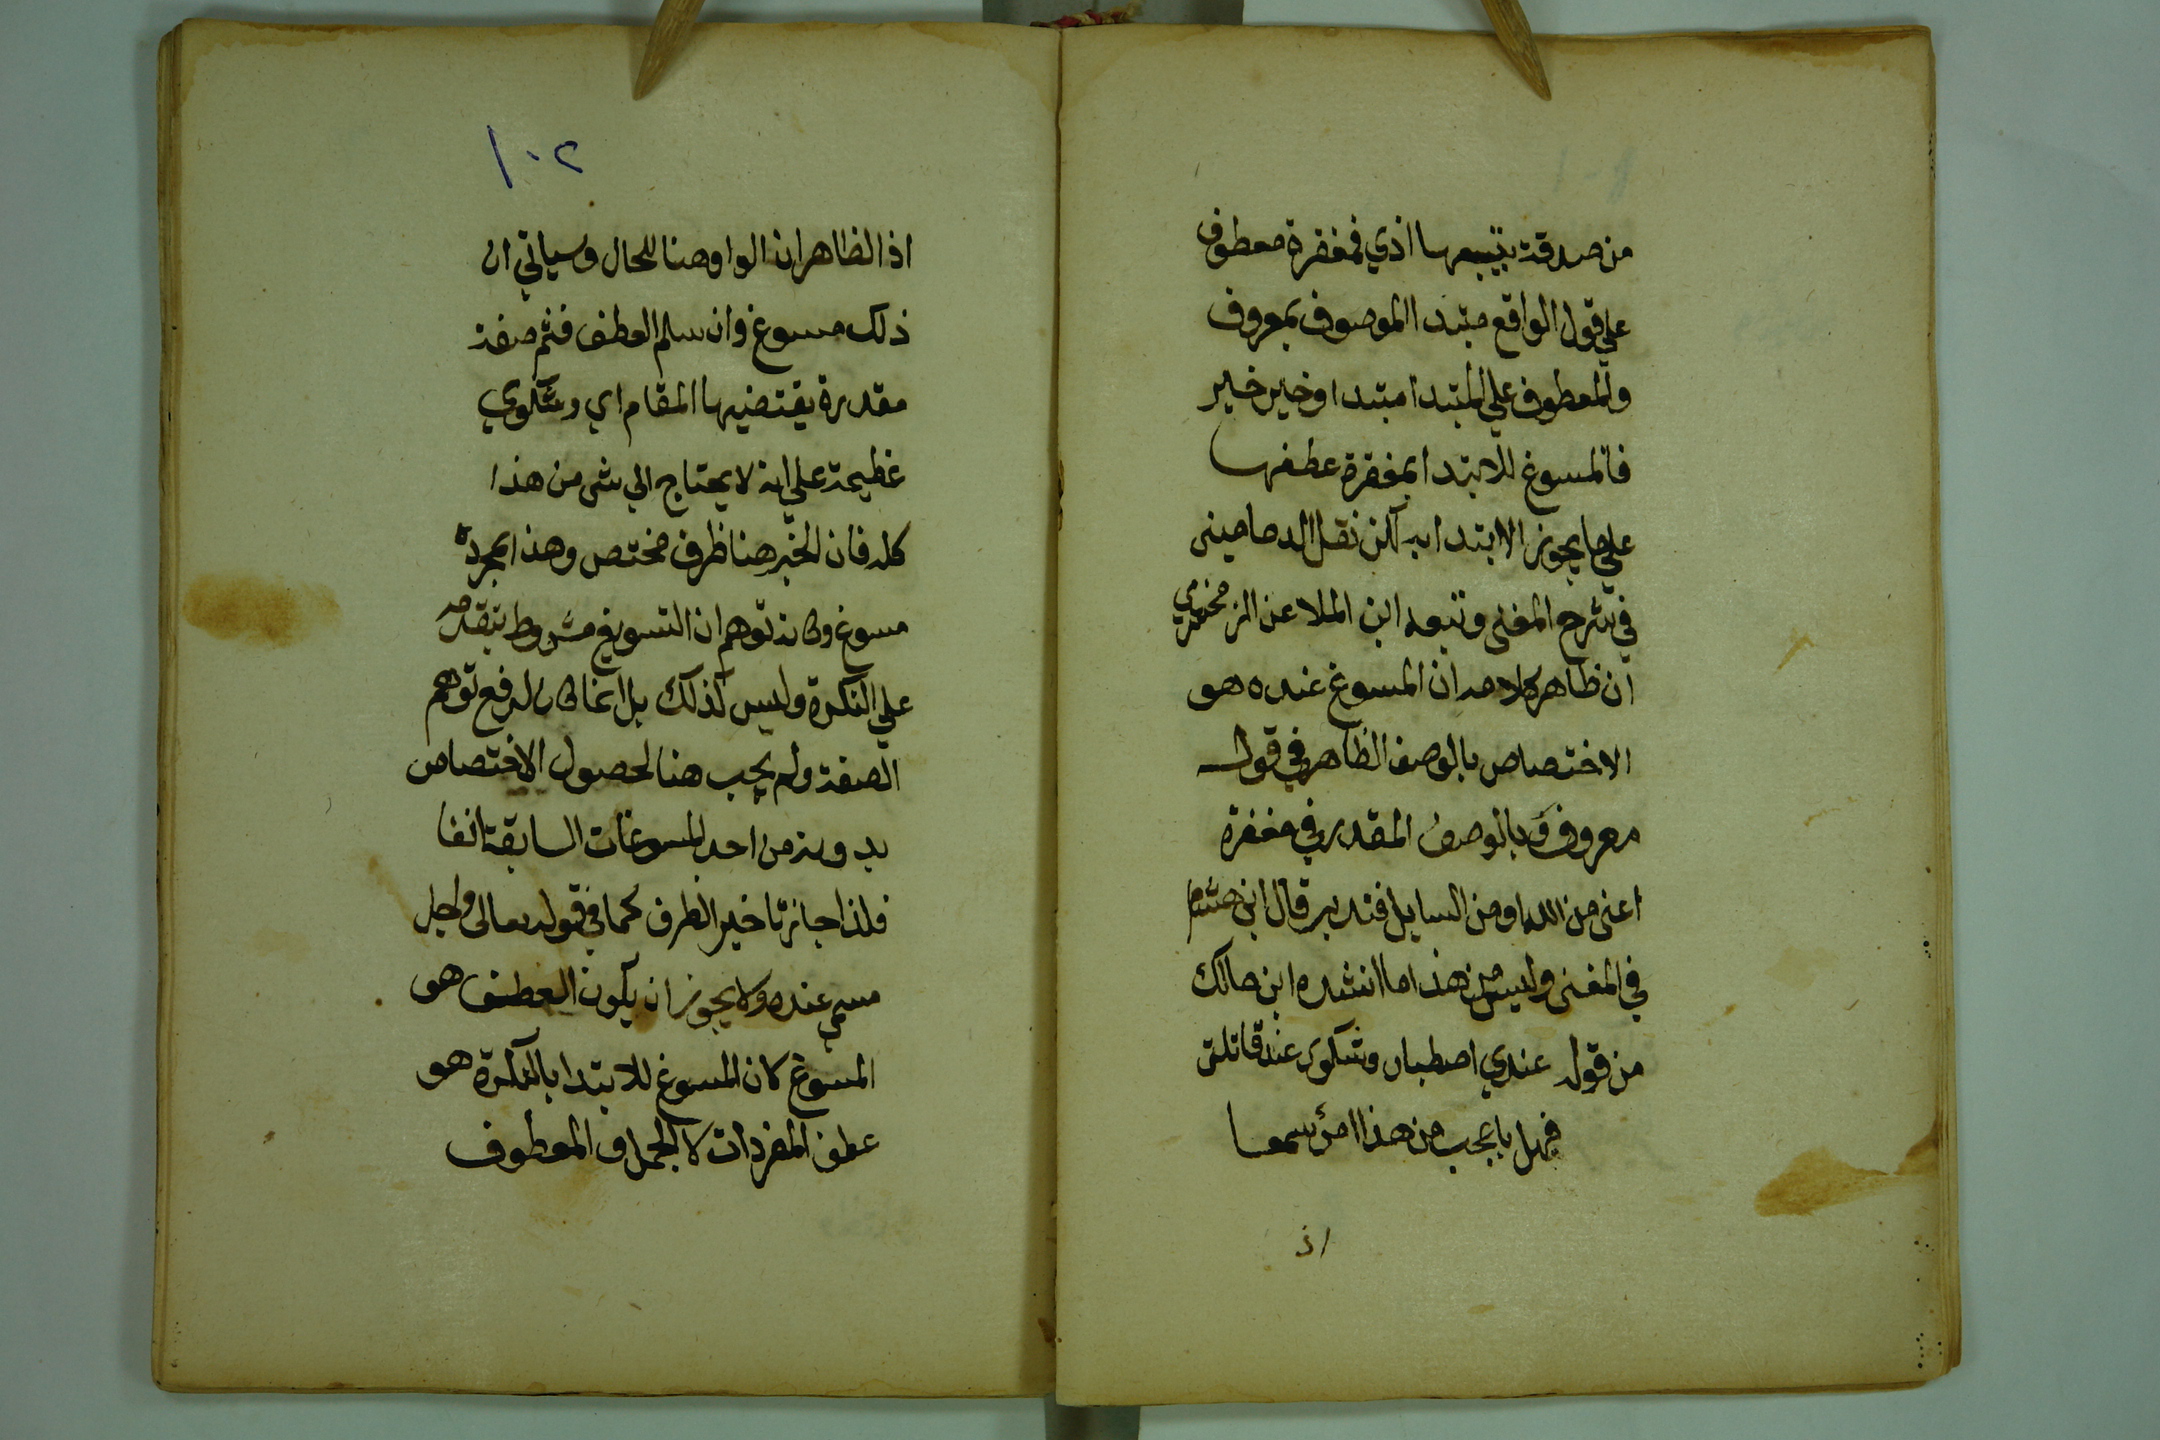 من صدقة يتبعها اذي فمغفرة معطوف
علي قول الواقع مبتدا الموصوف بمعروف
والمعطوف علي المبتدا مبتدا وخير خبر
فالمسوغ للابتدا بمغفرة عطفها
علي ما يجوز الابتدا به لكن نقل الدماميني
في شرح المغني وتبعه ابن الملا عن الزمخشري
ان ظاهر كلامه ان المسوغ عنده هو
الاختصاص بالوصف الظاهر في قول
معروف وبالوصف المقدر في مغفرة
اعني من الله او من السايل فتدبر قال ابن هشام
في المغني وليس من هذا ما انشده ابن مالك
من قوله عندي اصطبار وشكوى عند قاتلتي
فهل باعجب من هذا امرؤ سمعا
اذ
١٠٢
اذ الظاهر ان الواو هنا للحال وسياتي ان
ذلك مسوغ وان سلم العطف فثم صفة
مقدرة يقتضيها المقام اي وشكوي
عظيمة علي انه لا يحتاج الي شي من هذا
كله فان الخبر هنا ظرف مختص وهذا بمجرده
مسوغ وكانه توهم ان التسويغ مشروط بتقدمه
علي النكرة وليس كذلك بل انما كان لدفع توهم
الصفة ولم يجب هنا لحصول الاختصاص
بدونه من احد المسوغات السابقة انفا
فلذا جاز تاخير الظرف كما في قوله تعالى واجل
مسمي عنده ولا يجوز ان يكون العطف هو
المسوغ كان المسوغ للابتدا بالنكرة هو
عطف المفردات لا الجمل و المعطوف